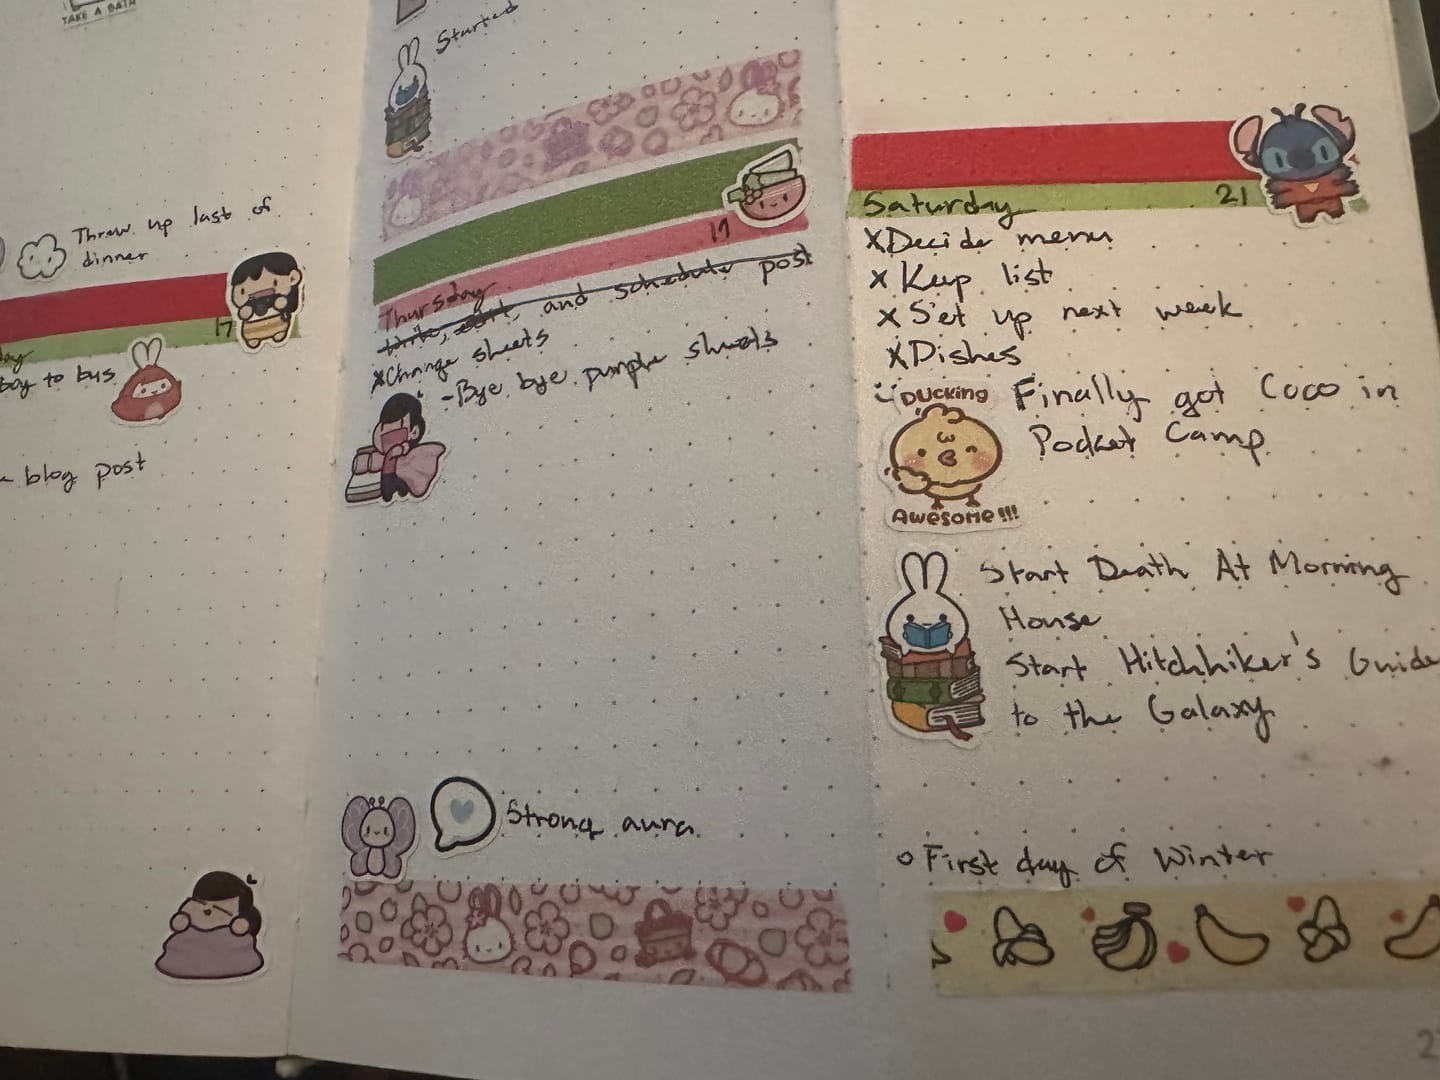 TAKE A BATH
Threw up last of
dinner
17
day
boy to bus
blog post
Started
19
Thursday
Write, edit, and schedule post
xChange sheets
-Bye bye purple sheets
Strong aura
Saturday 21
xDecide menu
x Keep list
x Set up next week
xDishes
DUCKING
AWESOME!!!
Finally got Coco in
Pocket Camp
Start Death At Morning
House
Start Hitchhiker's Guide
to the Galaxy
o First day of Winter